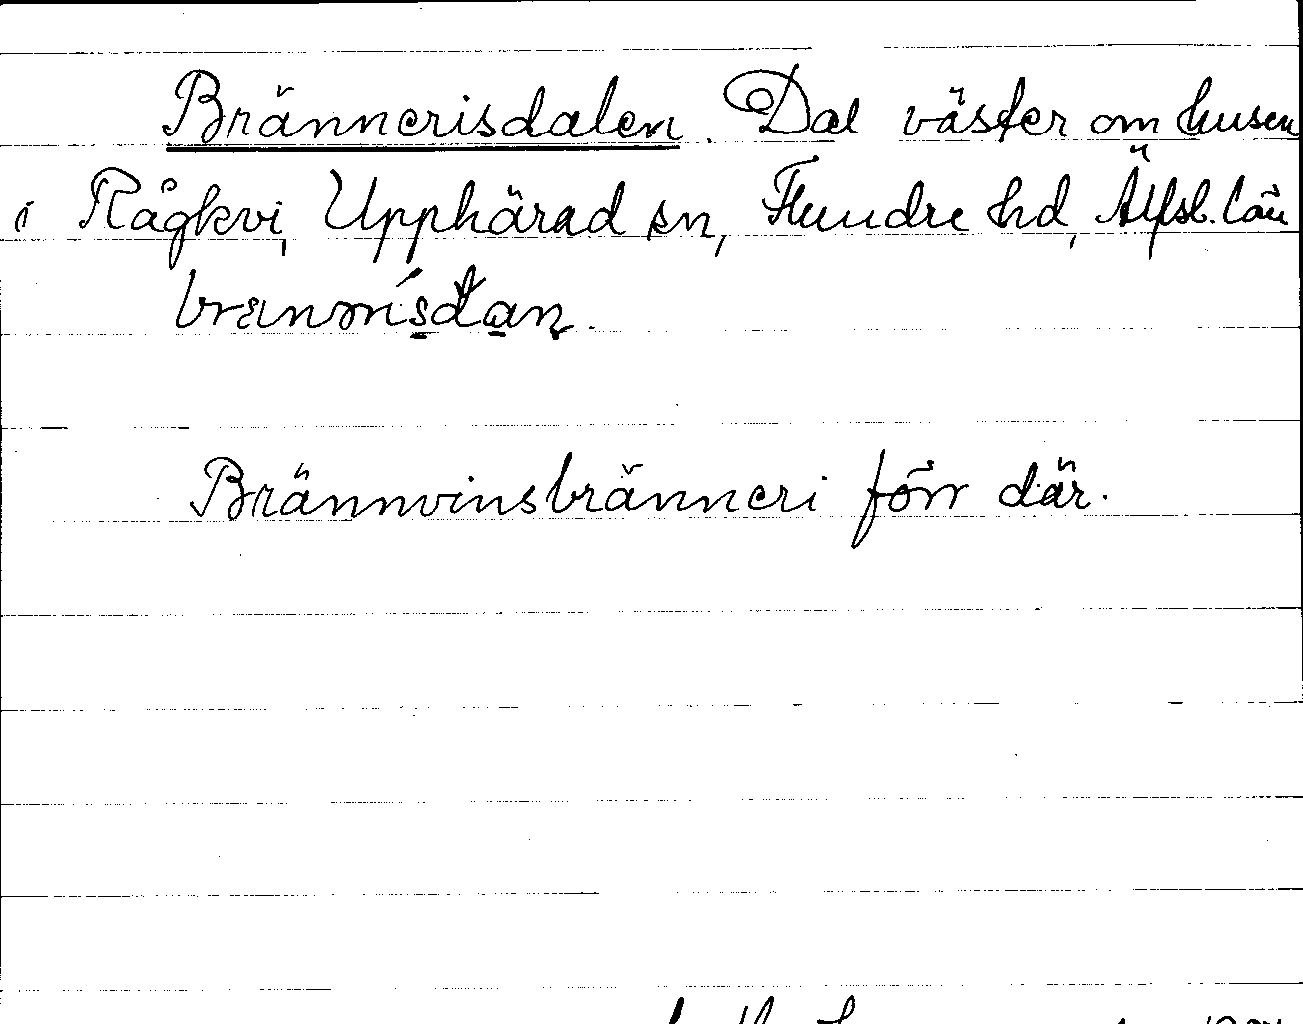 Brännerisdalen. Dal väster om husen
i Rågkvi, Upphärad sn, Flundre hd, Älfsb. län
Brännvinsbränneri förr där.